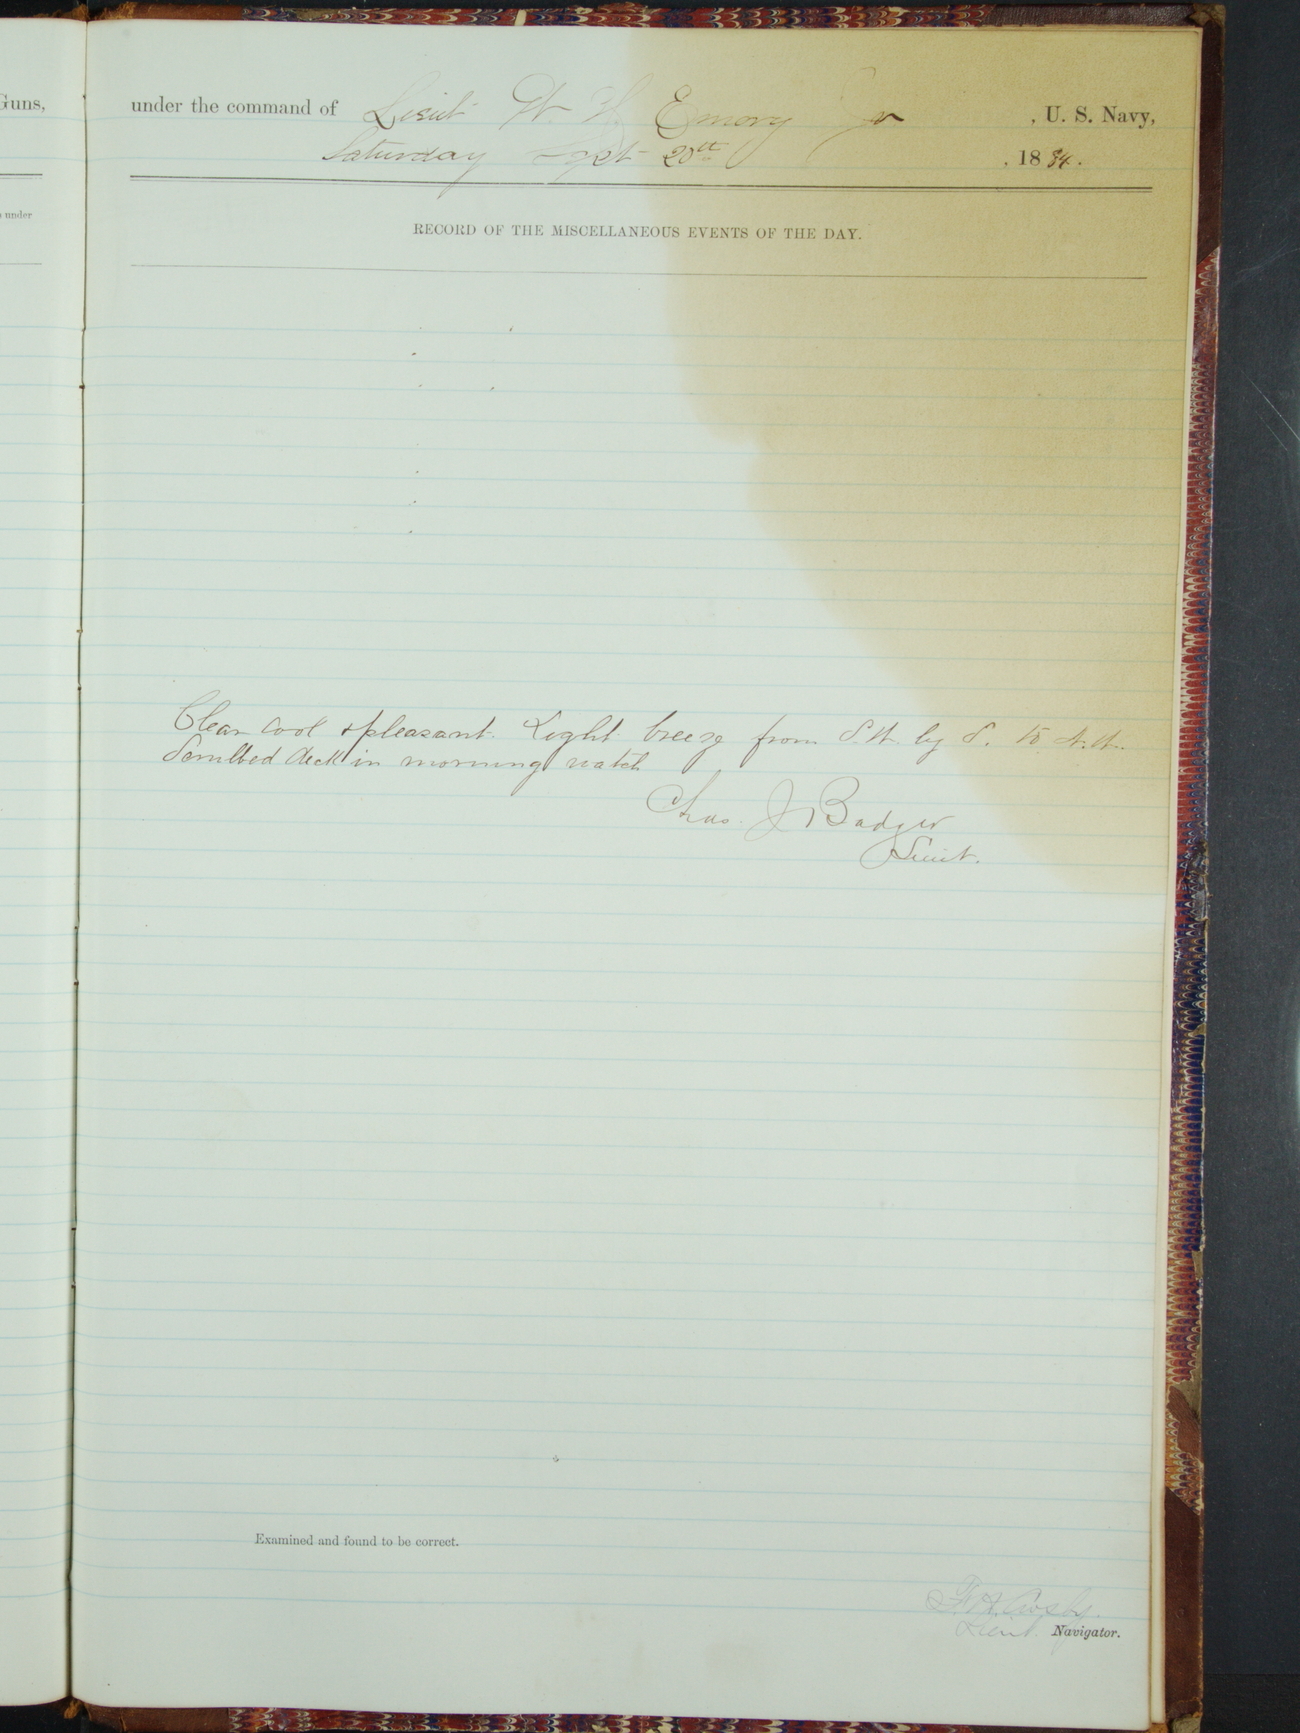 Guns,
under the command of Lieut W. H. Emory Jr , U. S. Navy,
Saturday Sept 20th , 1884.
under
RECORD OF THE MISCELLANEOUS EVENTS OF THE DAY.
Clear cool & pleasant. Light breeze from S.W. by S. to
Scrubbed deck in morning watch
Chas. J Badger
Lieut.
Examined and found to be correct.
Lieut. Navigator.